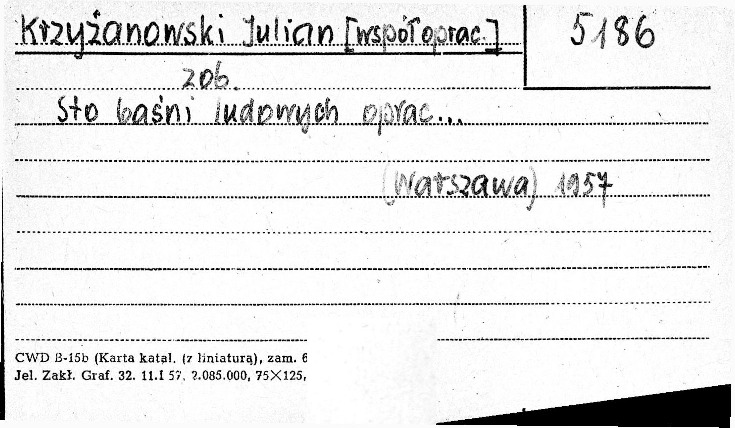 Krzyżanowski Julian [współoprac.] 5186
zob.
Sto baśni ludowych oprac...
(Warszawa) 1957
CWD B-15b (Karta katal. (z liniaturą), zam. 6
Jel. Zakł. Graf. 32. 11.I 57. 2.085.000, 75×125,